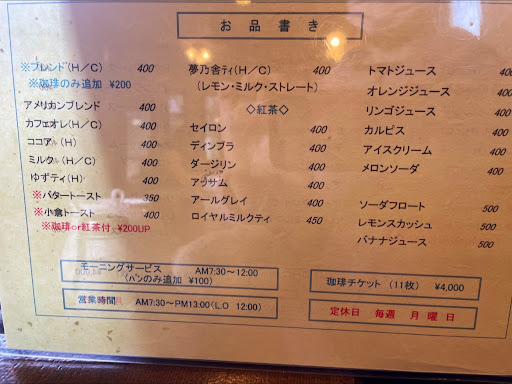 お品書き
※ブレンド(H/C) 400
※珈琲のみ追加 ¥200
アメリカンブレンド 400
カフェオレ(H/C) 400
ココア(H) 400
ミルク(H/C) 400
ゆずティ(H) 400
※バタートースト 350
※小倉トースト 400
※珈琲or紅茶付 ¥200UP
夢乃舎ティ(H/C) 400
(レモン・ミルク・ストレート)
◇紅茶◇
セイロン 400
ディンブラ 400
ダージリン 400
アッサム 400
アールグレイ 400
ロイヤルミルクティ 450
トマトジュース 400
オレンジジュース 400
リンゴジュース 400
カルピス 400
アイスクリーム 400
メロンソーダ 400
ソーダフロート 500
レモンスカッシュ 500
バナナジュース 500
モーニングサービス AM7:30~12:00
(パンのみ追加 ¥100)
営業時間 AM7:30~PM13:00(L.O 12:00)
珈琲チケット (11枚) ¥4,000
定休日 毎週 月曜日